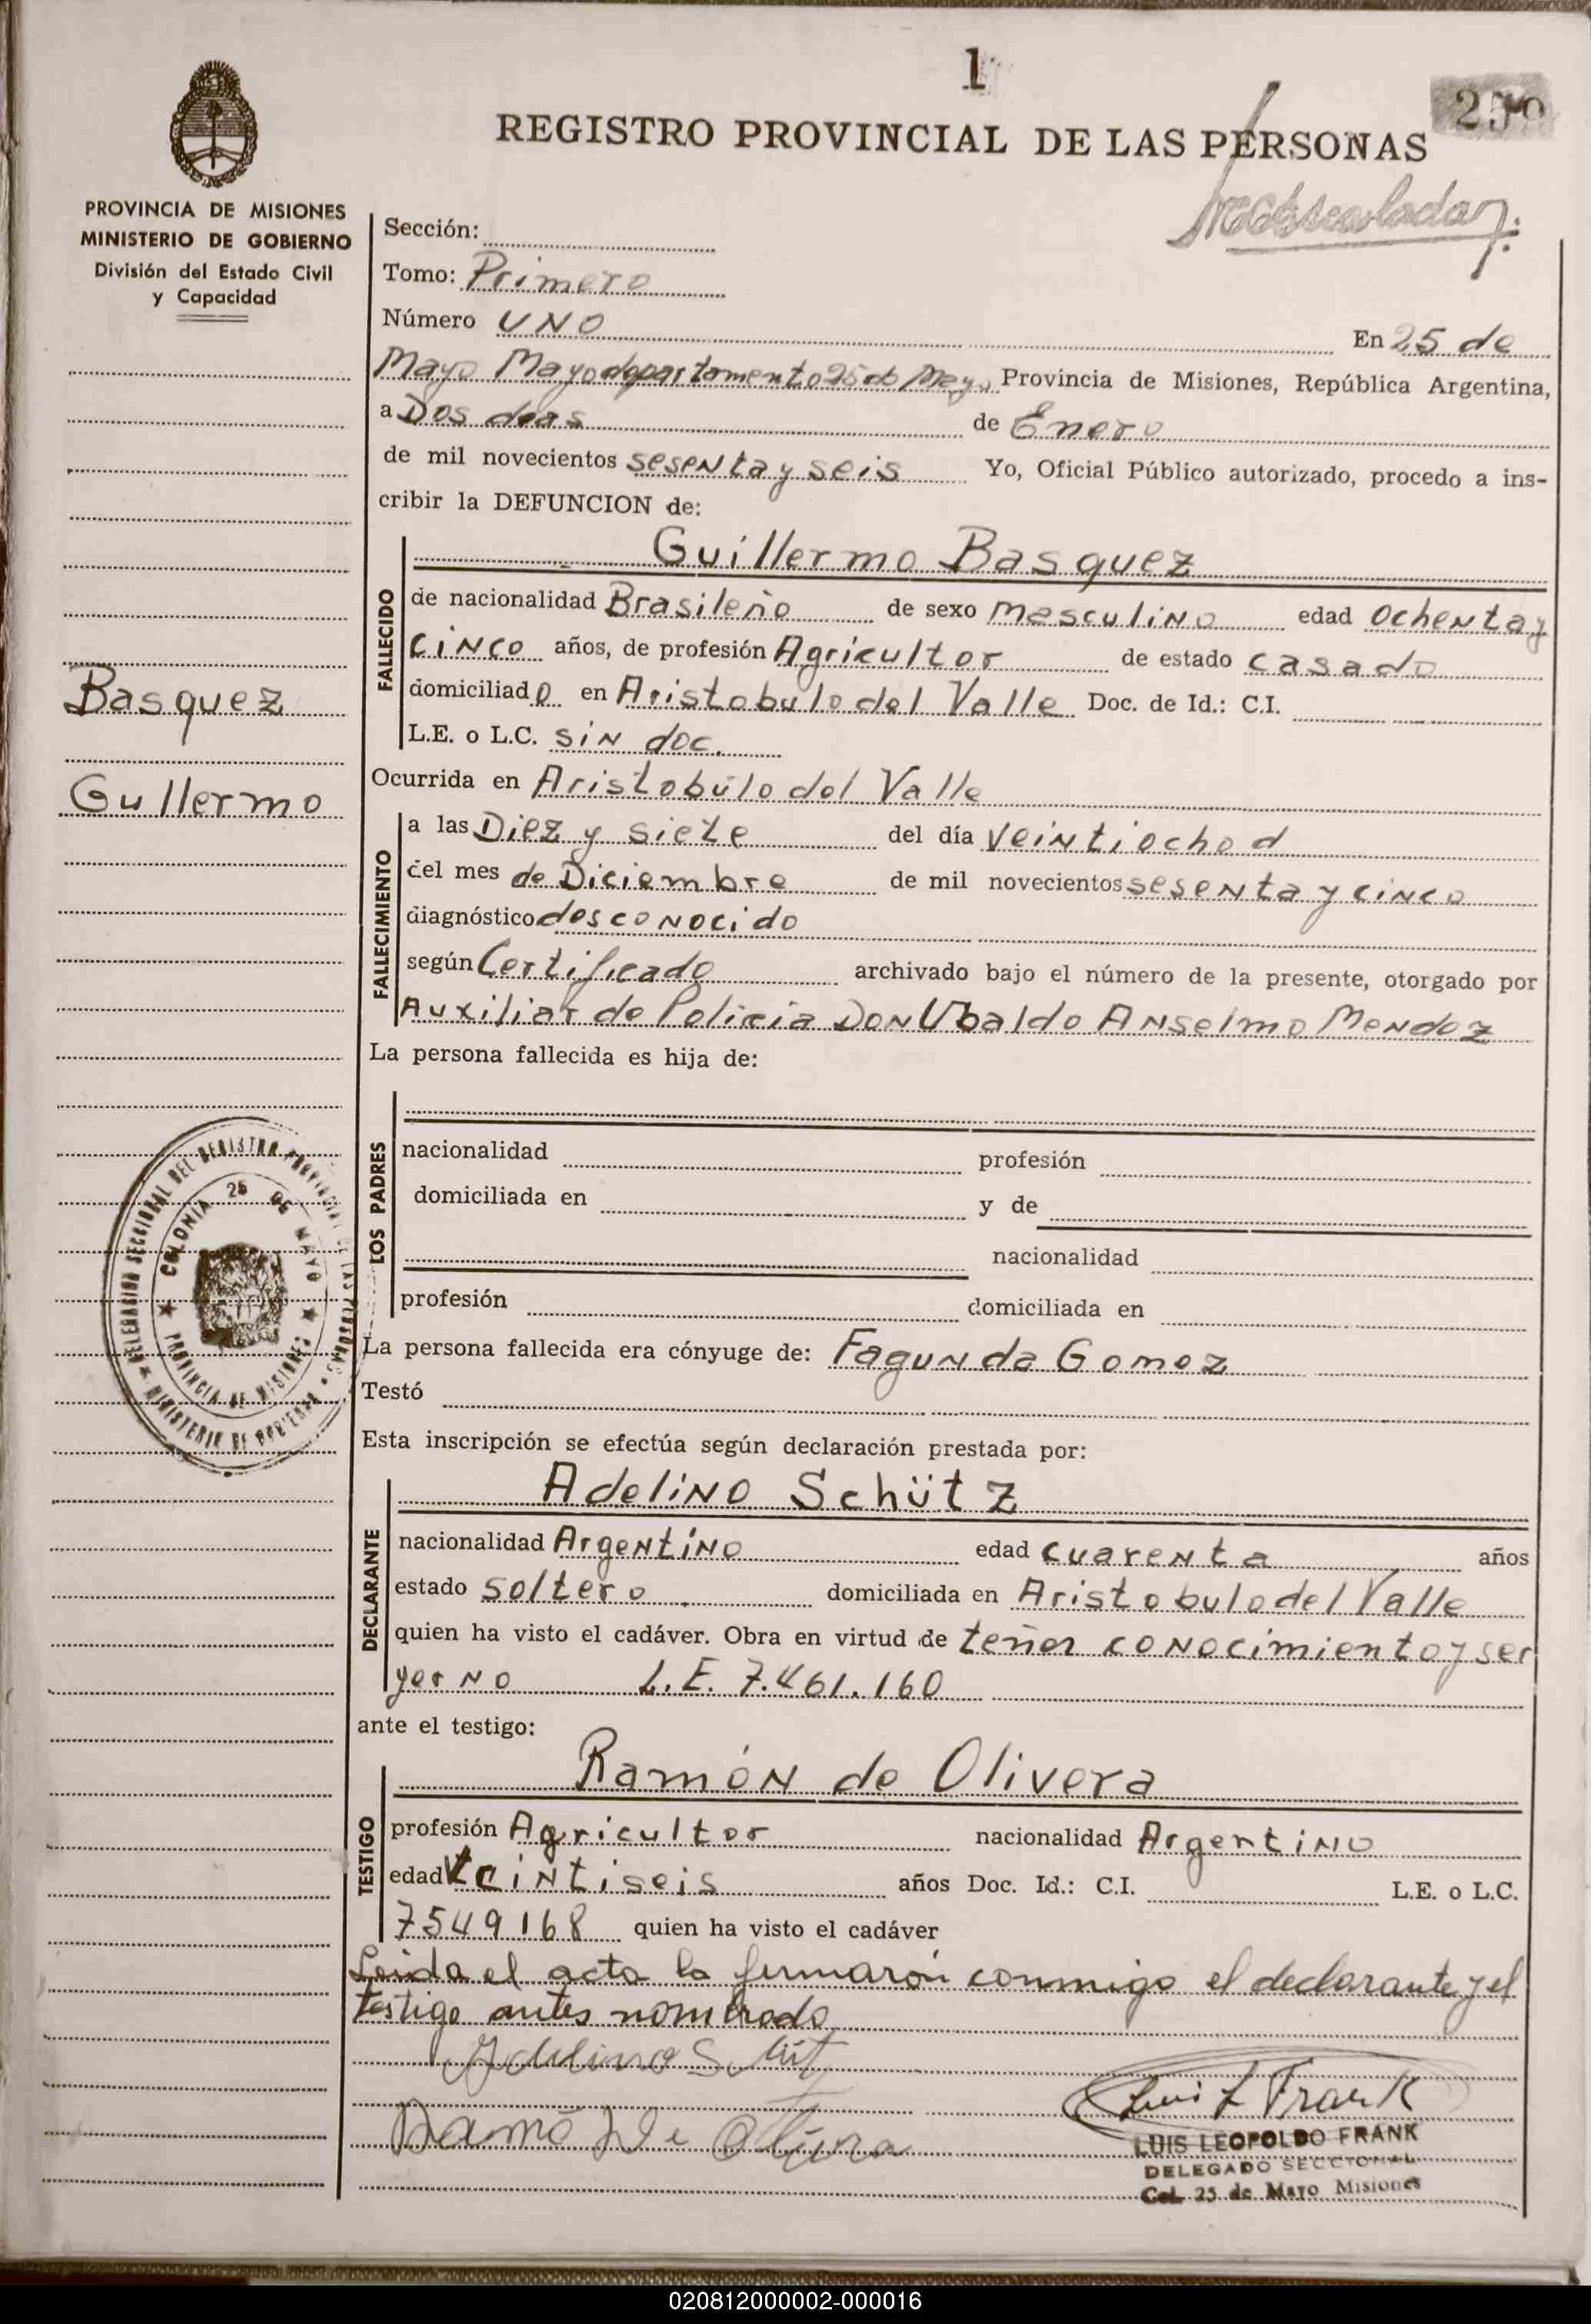 1
REGISTRO PROVINCIAL DE LAS PERSONAS
PROVINCIA DE MISIONES
MINISTERIO DE GOBIERNO
División del Estado Civil
y Capacidad
Sección:
Tomo: Primero
Número UNO En 25 de
Mayo Mayo departamento 25 de Mayo Provincia de Misiones, República Argentina,
a Dos dias de Enero
de mil novecientos sesenta y seis Yo, Oficial Público autorizado, procedo a ins-
cribir la DEFUNCION de:
Guillermo Basquez
FALLECIDO
de nacionalidad Brasileño de sexo masculino edad ochenta y
cinco años, de profesión Agricultor de estado casado
domiciliado en Aristobulo del Valle Doc. de Id.: C.I.
L.E. o L.C. sin doc.
Basquez
Gullermo
Ocurrida en Aristobúlo del Valle
FALLECIMIENTO
a las Diez y siete del día veintiocho d
del mes de Diciembre de mil novecientos sesenta y cinco
diagnóstico desconocido
según Certificado archivado bajo el número de la presente, otorgado por
Auxiliar de Policia Don Ubaldo Anselmo Mendoz
La persona fallecida es hija de:
LOS PADRES
nacionalidad profesión
domiciliada en y de
nacionalidad
profesión domiciliada en
DELEGACION SECCIONAL DEL REGISTRO PROVINCIAL DE LAS PERSONAS
COLONIA 25 DE MAYO
PROVINCIA DE MISIONES
MINISTERIO DE GOBIERNO
La persona fallecida era cónyuge de: Fagunda Gomez
Testó
Esta inscripción se efectúa según declaración prestada por:
Adelino Schütz
DECLARANTE
nacionalidad Argentino edad cuarenta años
estado soltero. domiciliada en Aristobulo del Valle
quien ha visto el cadáver. Obra en virtud de teñer conocimiento y ser
yerno L.E. 7.461.160
ante el testigo:
Ramón de Olivera
TESTIGO
profesión Agricultor nacionalidad Argentino
edad veintiseis años Doc. Id.: C.I. L.E. o L.C.
7549168 quien ha visto el cadáver
Leida el acta la firmarón conmigo el declarante y el
testigo antes nombrado
Luis L Frank
LUIS LEOPOLDO FRANK
DELEGADO SECCIONAL
Col. 25 de Mayo Misiones
020812000002-000016